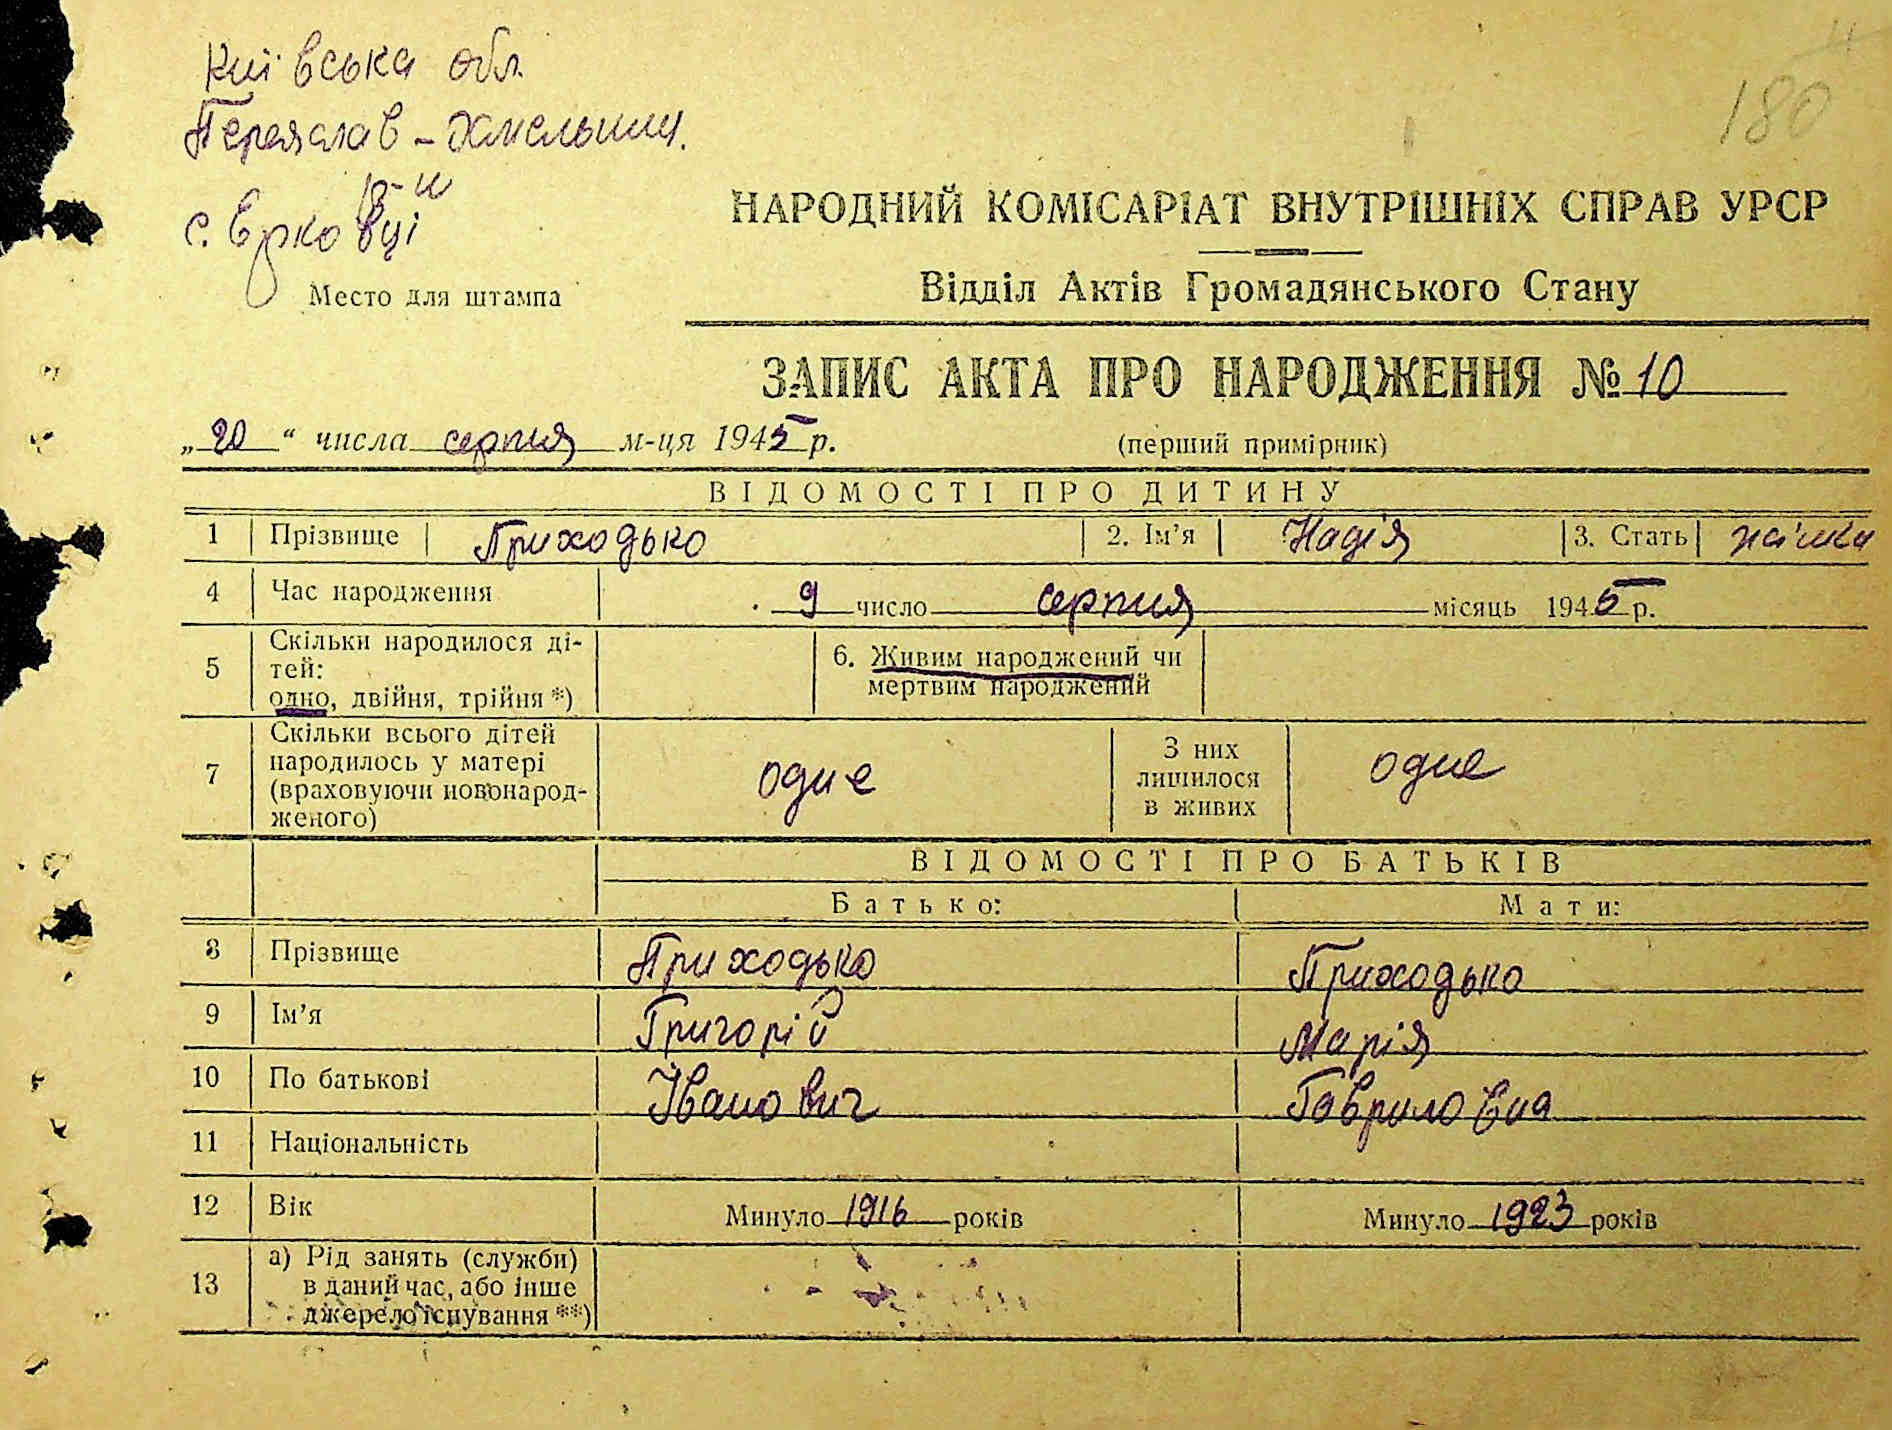 180
Київська обл.
Переяслав-Хмельниц.
р-н
с. Єрковці
Место для штампа
НАРОДНИЙ КОМІСАРІАТ ВНУТРІШНІХ СПРАВ УРСР
Відділ Актів Громадянського Стану
ЗАПИС АКТА ПРО НАРОДЖЕННЯ № 10
„20“ числа серпня м-ця 1945 р. (перший примірник)
ВІДОМОСТІ ПРО ДИТИНУ
1 Прізвище Приходько 2. Ім’я Надія 3. Стать жінка
4 Час народження 9 число серпня місяць 1945 р.
5 Скільки народилося ді-
тей:
одно, двійня, трійня *)
6. Живим народжений чи
мертвим народжений
7 Скільки всього дітей
народилось у матері
(враховуючи новонарод-
женого)
одне
З них
лишилося
в живих
одне
ВІДОМОСТІ ПРО БАТЬКІВ
Батько: Мати:
8 Прізвище Приходько Приходько
9 Ім’я Григорій Марія
10 По батькові Іванович Гаврилоєна
11 Національність
12 Вік Минуло 1916 років Минуло 1923 років
13 а) Рід занять (служби)
в даний час, або інше
джерело існування **)